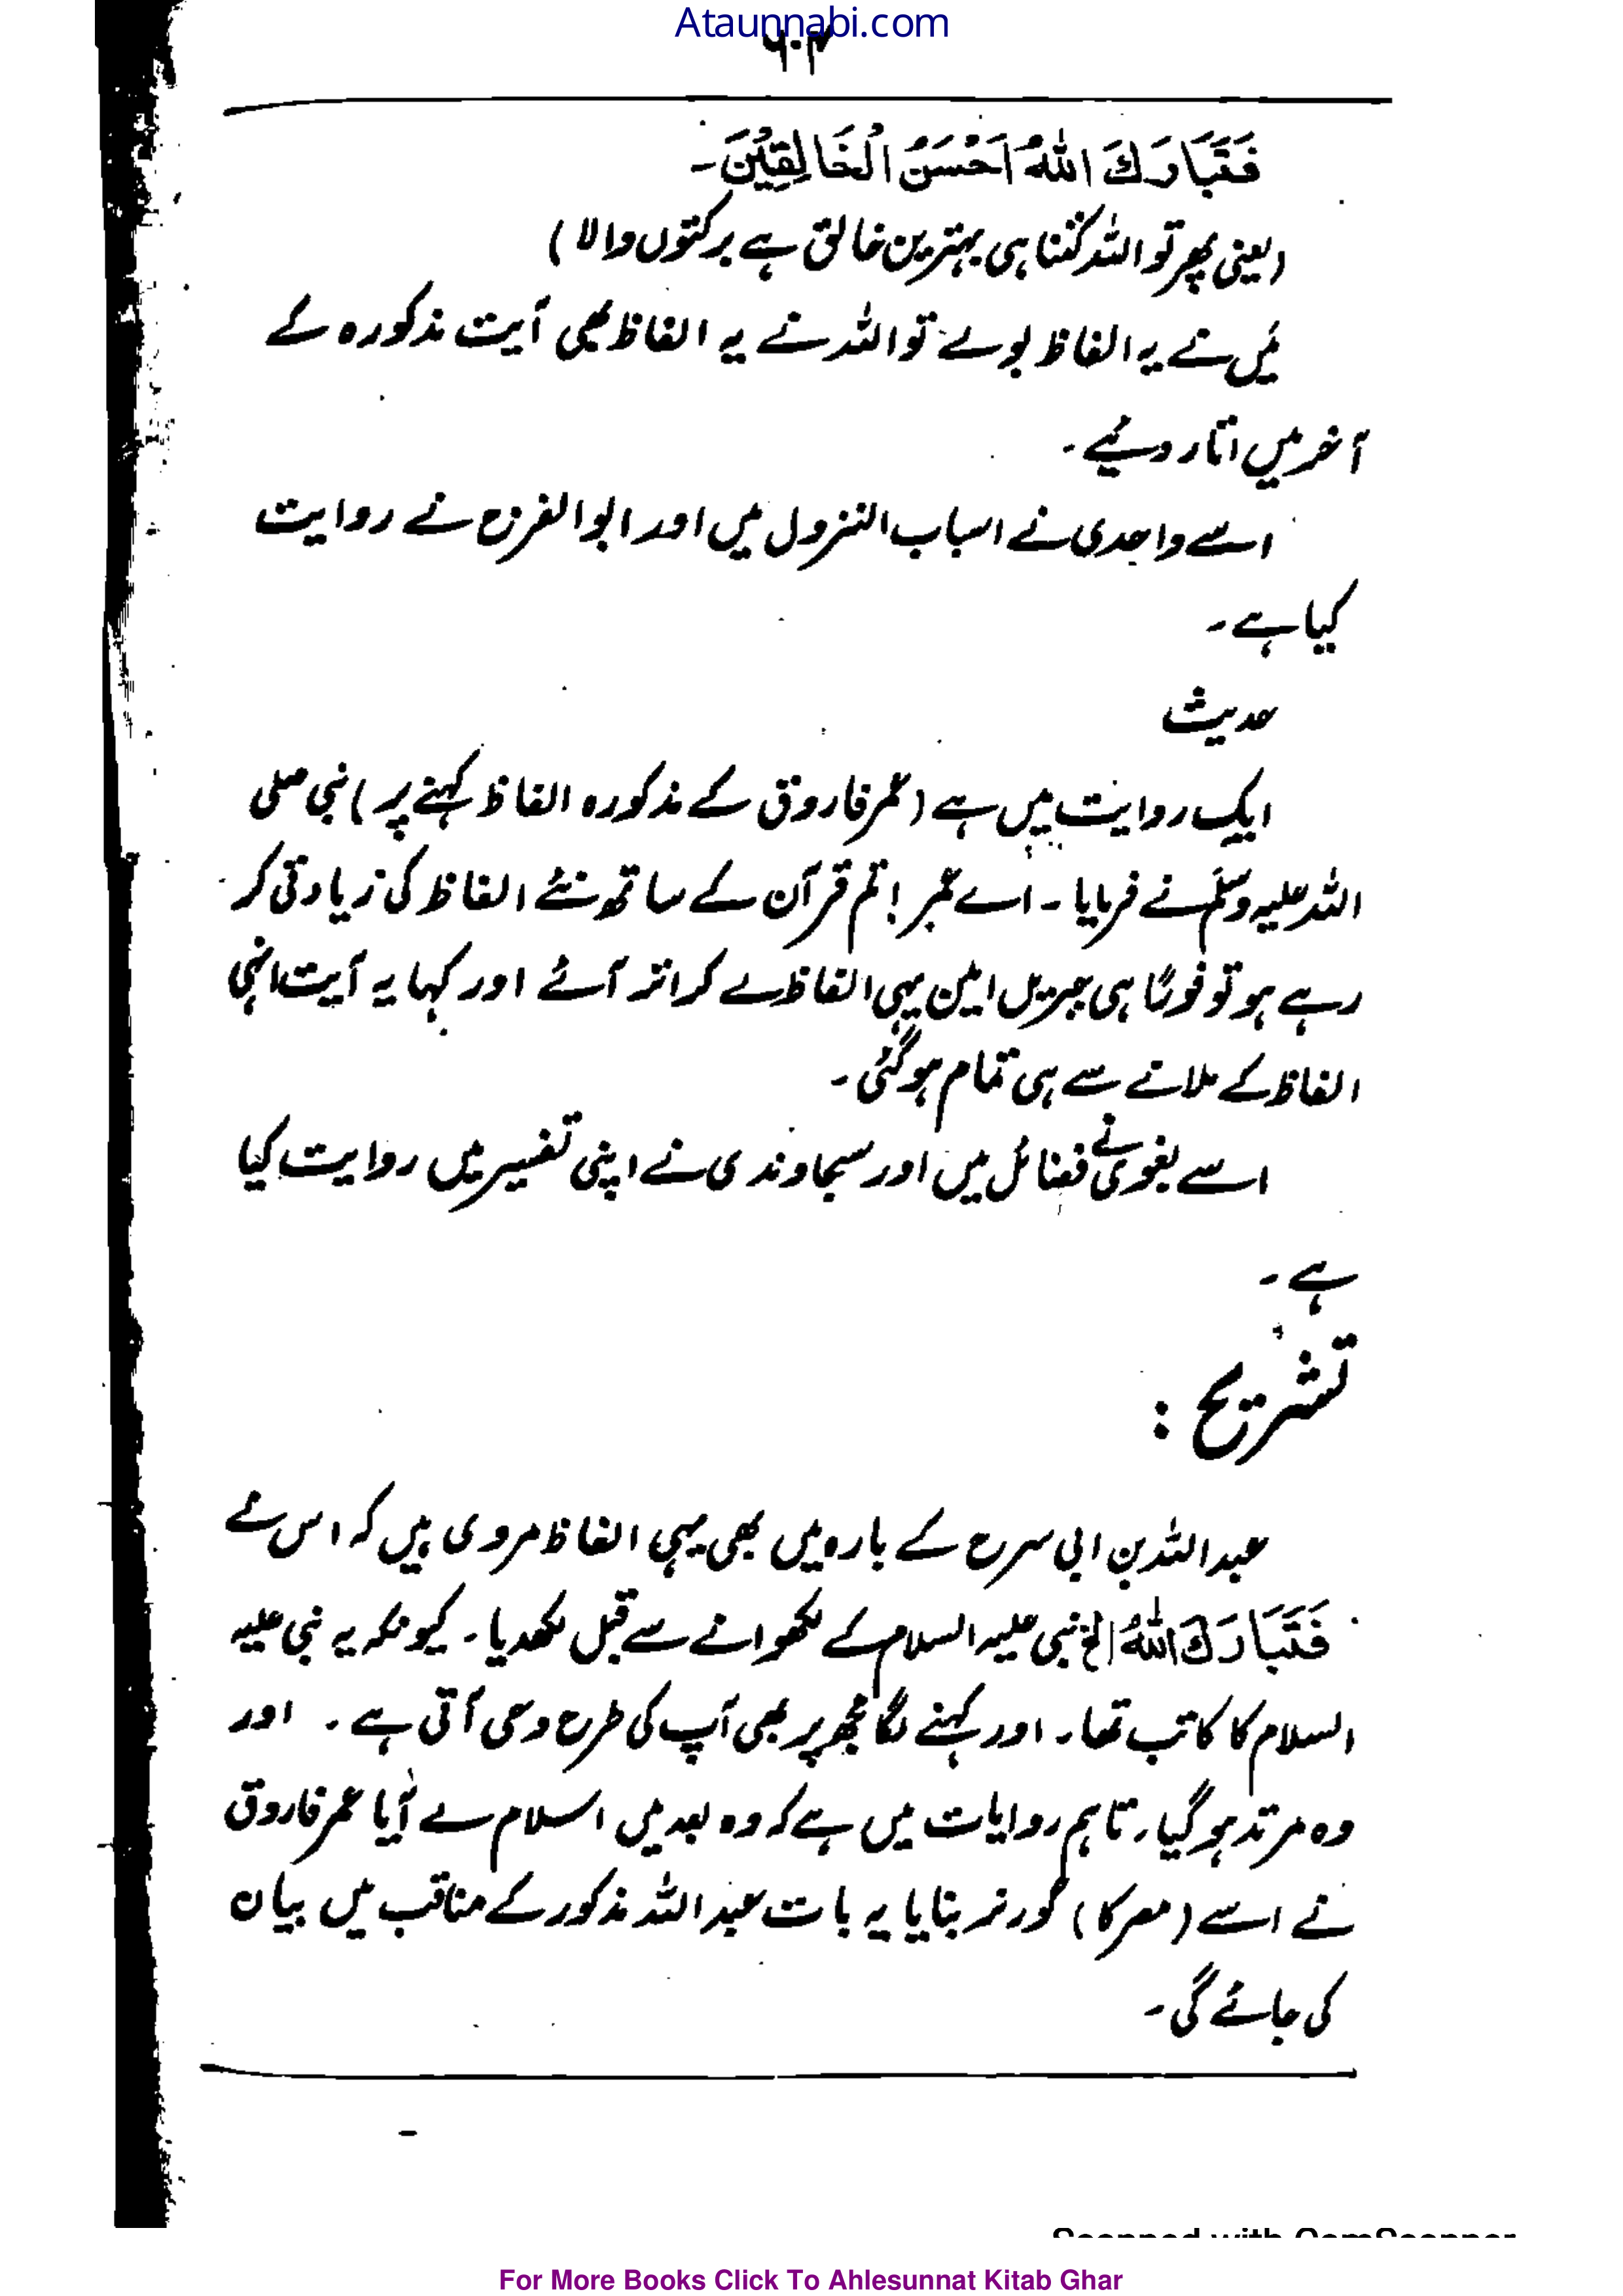 Ataunnabi.com
۶۰۴
فَتَبَارَكَ اللهُ اَحْسَنُ الْخَالِقِيْنَ۔
(یعنی پھر تو اللہ کتنا ہی بہترین خالق ہے برکتوں والا)
میں نے یہ الفاظ بولے تو اللہ نے یہ الفاظ بھی آیت مذکورہ کے
آخر میں اتار دیئے۔
اسے واحدی نے اسباب النزول میں اور ابوالفرج نے روایت
کیا ہے۔
حدیث
ایک روایت میں ہے (عمر فاروق کے مذکورہ الفاظ کہنے پر) نبی صلی
اللہ علیہ وسلم نے فرمایا۔ اے عمر! تم قرآن کے ساتھ نئے الفاظ کی زیادتی کر
رہے ہو تو فورًا ہی جبریل امین یہی الفاظ لے کر اتر آئے اور کہا یہ آیت انہی
الفاظ کے ملانے سے ہی تمام ہو گئی۔
اسے بغوی نے فضائل میں اور سجاوندی نے اپنی تفسیر میں روایت کیا
ہے۔
تشریح :
عبداللہ بن ابی سرح کے بارہ میں بھی یہی الفاظ مروی ہیں کہ اس نے
فَتَبَارَكَ اللهُ الخ نبی علیہ السلام کے لکھوانے سے قبل لکھدیا۔ کیونکہ یہ نبی علیہ
السلام کا کاتب تھا۔ اور کہنے لگا مجھ پر بھی آپ کی طرح وحی آتی ہے۔ اور
وہ مرتد ہو گیا۔ تاہم روایات میں ہے کہ وہ بعد میں اسلام لے آیا عمر فاروق
نے اسے (مصر کا) گورنر بنایا یہ بات عبداللہ مذکور کے مناقب میں بیان
کی جائے گی۔
Scanned with CamScanner
For More Books Click To Ahlesunnat Kitab Ghar